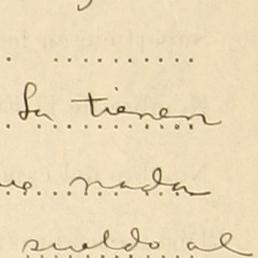 La tienen
ue nada
sueldo al